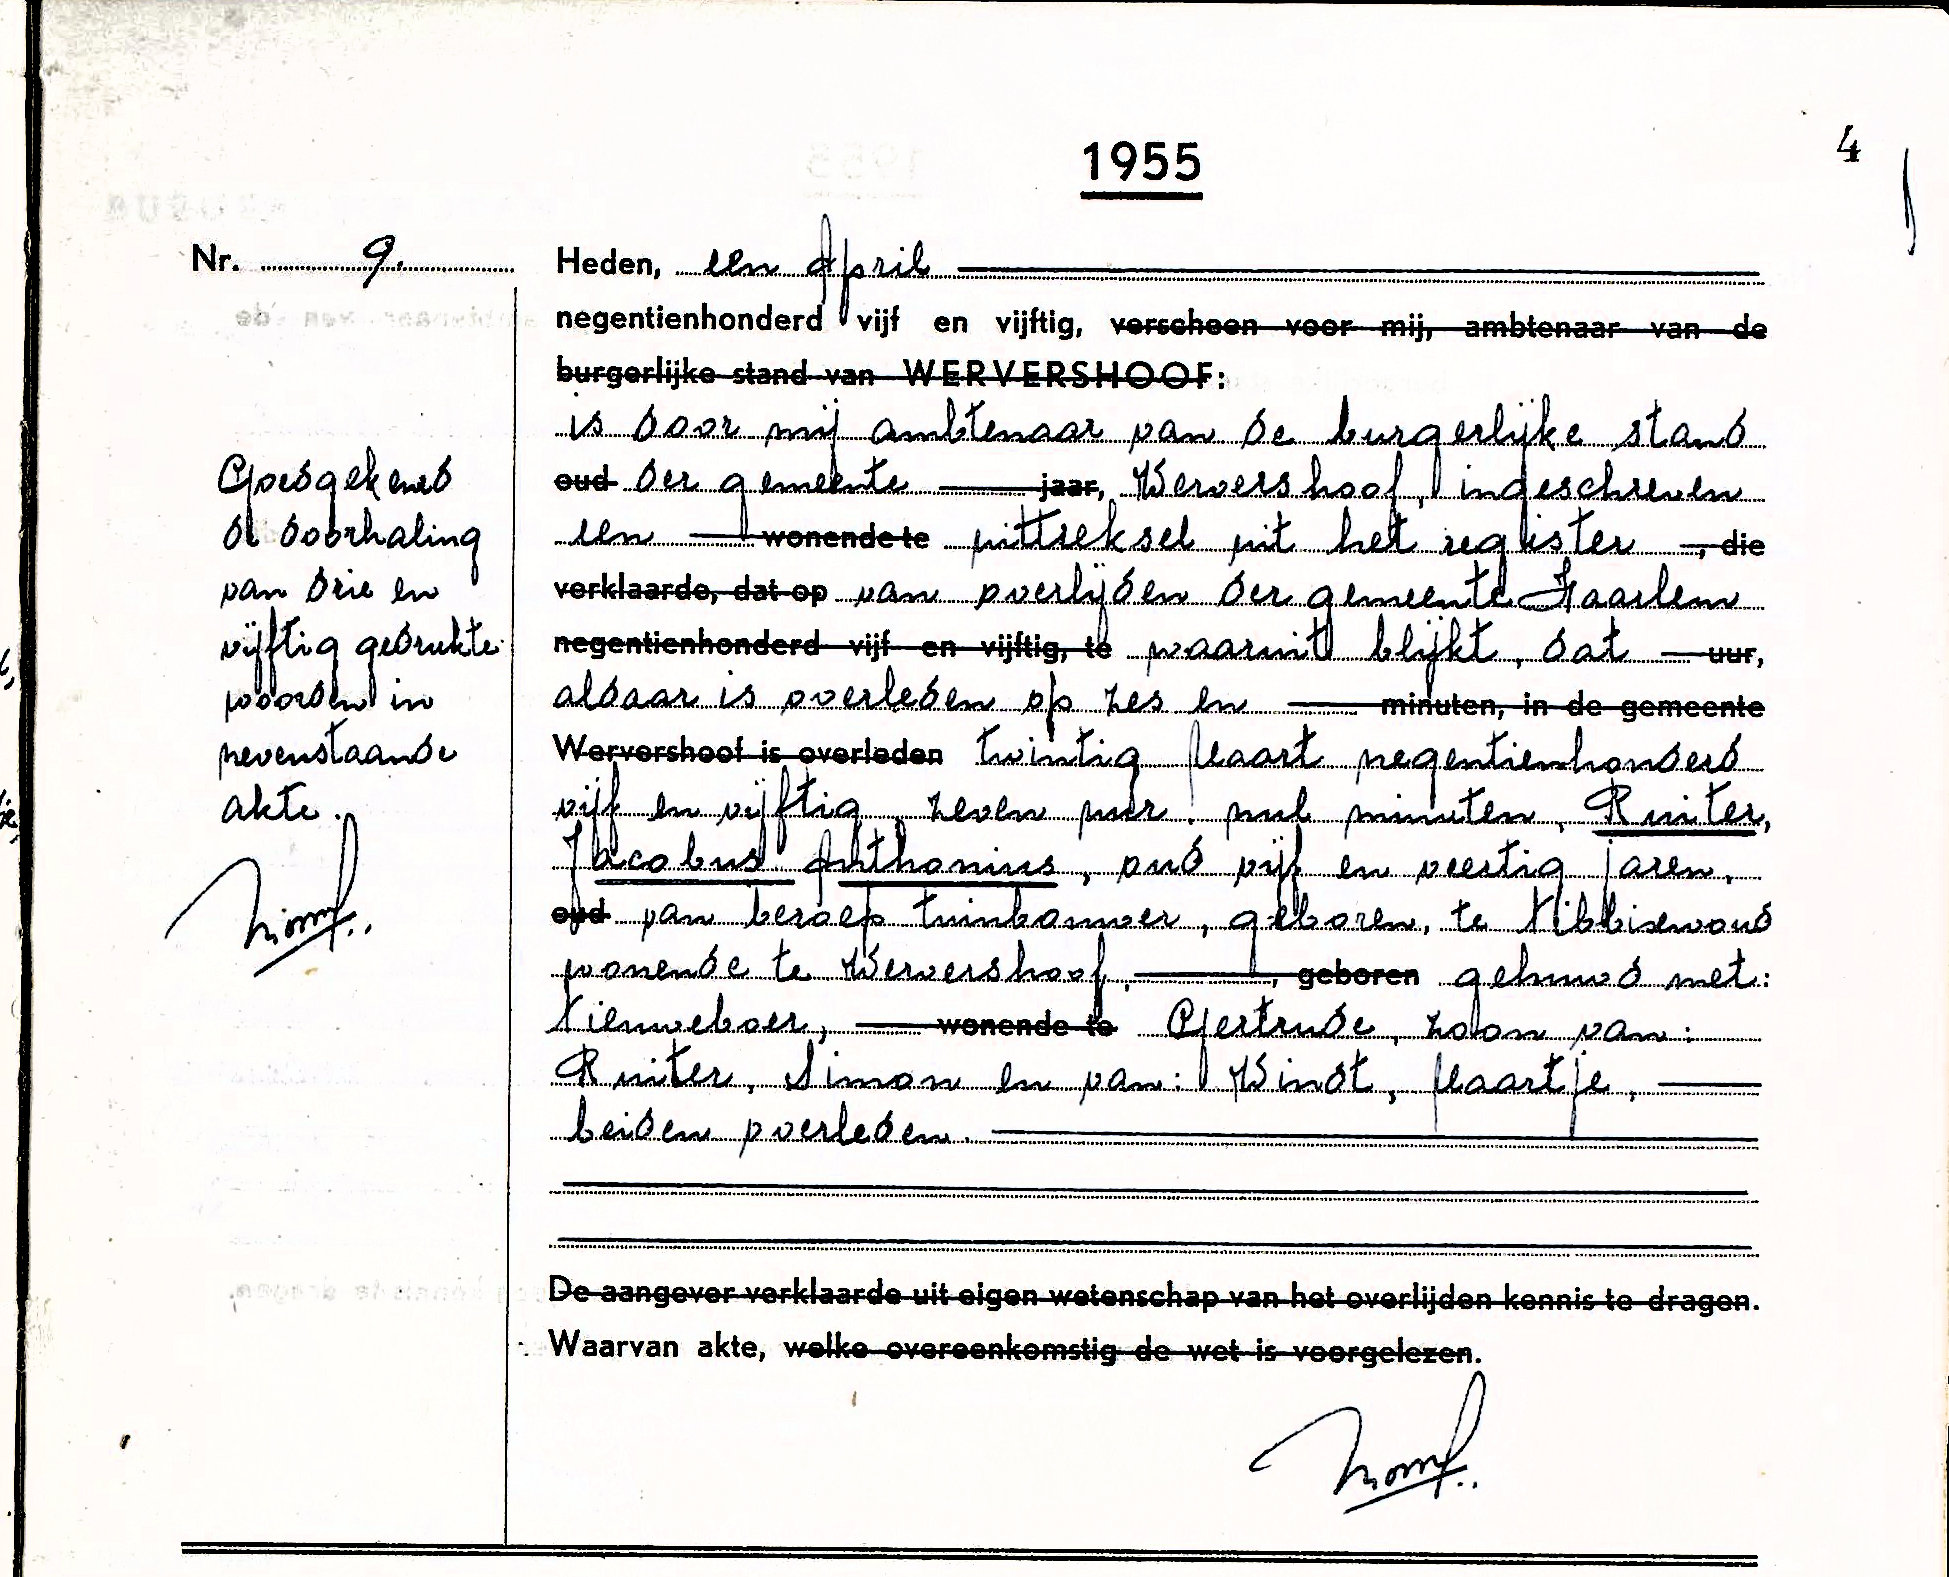 1955
4
Nr. 9.
Heden, een April
negentienhonderd vijf en vijftig, verscheen voor mij, ambtenaar van de
burgerlijke stand van WERVERSHOOF:
is door mij ambtenaar van de burgerlijke stand
oud der gemeente jaar, Wervershoof, ingeschreven
een wonende te uittreksel uit het register , die
verklaarde, dat op van overlijden der gemeente Haarlem
negentienhonderd vijf en vijftig, te waaruit blijkt, dat uur,
aldaar is overleden op zes en minuten, in de gemeente
Wervershoof is overleden twintig Maart negentienhonderd
vijf en vijftig, zeven uur, nul minuten, Ruiter,
Jacobus Anthonius, oud vijf en veertig jaren,
oud van beroep tuinbouwer, geboren, te Nibbixwoud
wonende te Wervershoof, , geboren gehuwd met:
Nieuweboer, wonende te Gertrude, zoon van:
Ruiter, Simon en van: Windt, Maartje,
beiden overleden.
De aangever verklaarde uit eigen wetenschap van het overlijden kennis te dragen.
Waarvan akte, welke overeenkomstig de wet is voorgelezen.
Goedgekeurd
de doorhaling
van drie en
vijftig gedrukte
woorden in
nevenstaande
akte.